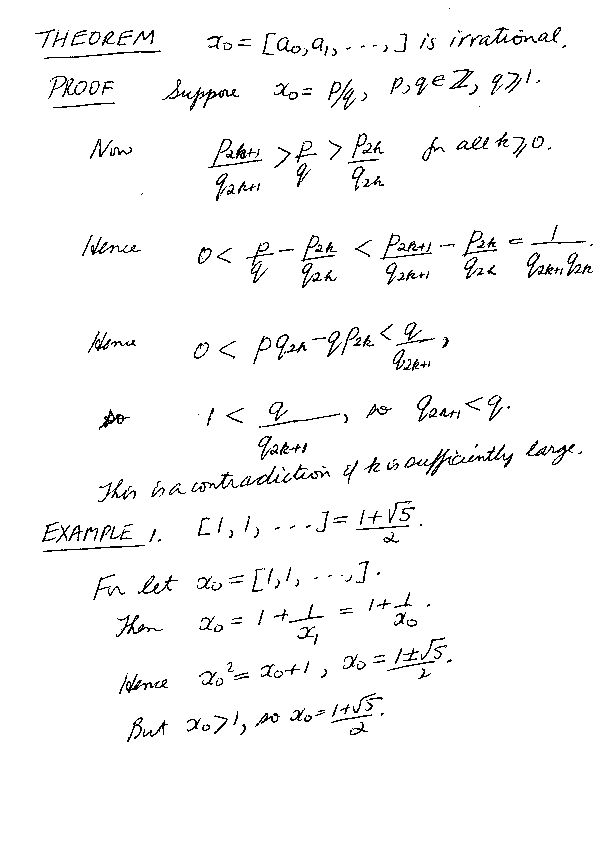 THEOREM x₀ = [a₀, a₁, ..., ] is irrational.
PROOF Suppose x₀ = p/q, p, q ∈ ℤ, q ≥ 1.
Now p₂ₖ₊₁/q₂ₖ₊₁ > p/q > p₂ₖ/q₂ₖ for all k ≥ 0.
Hence 0 < p/q − p₂ₖ/q₂ₖ < p₂ₖ₊₁/q₂ₖ₊₁ − p₂ₖ/q₂ₖ = 1/(q₂ₖ₊₁ q₂ₖ).
Hence 0 < p q₂ₖ − q p₂ₖ < q/q₂ₖ₊₁,
so 1 < q/q₂ₖ₊₁, so q₂ₖ₊₁ < q.
This is a contradiction if k is sufficiently large.
EXAMPLE 1. [1, 1, ...] = (1+√5)/2.
For let x₀ = [1, 1, ...,].
Then x₀ = 1 + 1/x₁ = 1 + 1/x₀.
Hence x₀² = x₀ + 1, x₀ = (1±√5)/2.
But x₀ > 1, so x₀ = (1+√5)/2.